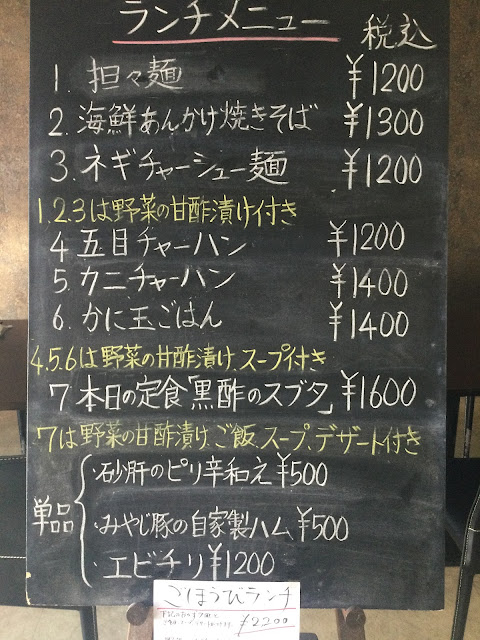 ランチメニュー 税込
1. 担々麺 ¥1200
2. 海鮮あんかけ焼きそば ¥1300
3. ネギチャーシュー麺 ¥1200
1.2.3は野菜の甘酢漬け付き
4 五目チャーハン ¥1200
5. カニチャーハン ¥1400
6. かに玉ごはん ¥1400
4.5.6は野菜の甘酢漬け、スープ付き
7 本日の定食「黒酢のスブタ」 ¥1600
7は野菜の甘酢漬け、ご飯、スープ、デザート付き
単品
・砂肝のピリ辛和え ¥500
・みやじ豚の自家製ハム ¥500
・エビチリ ¥1200
ごほうびランチ
¥2200